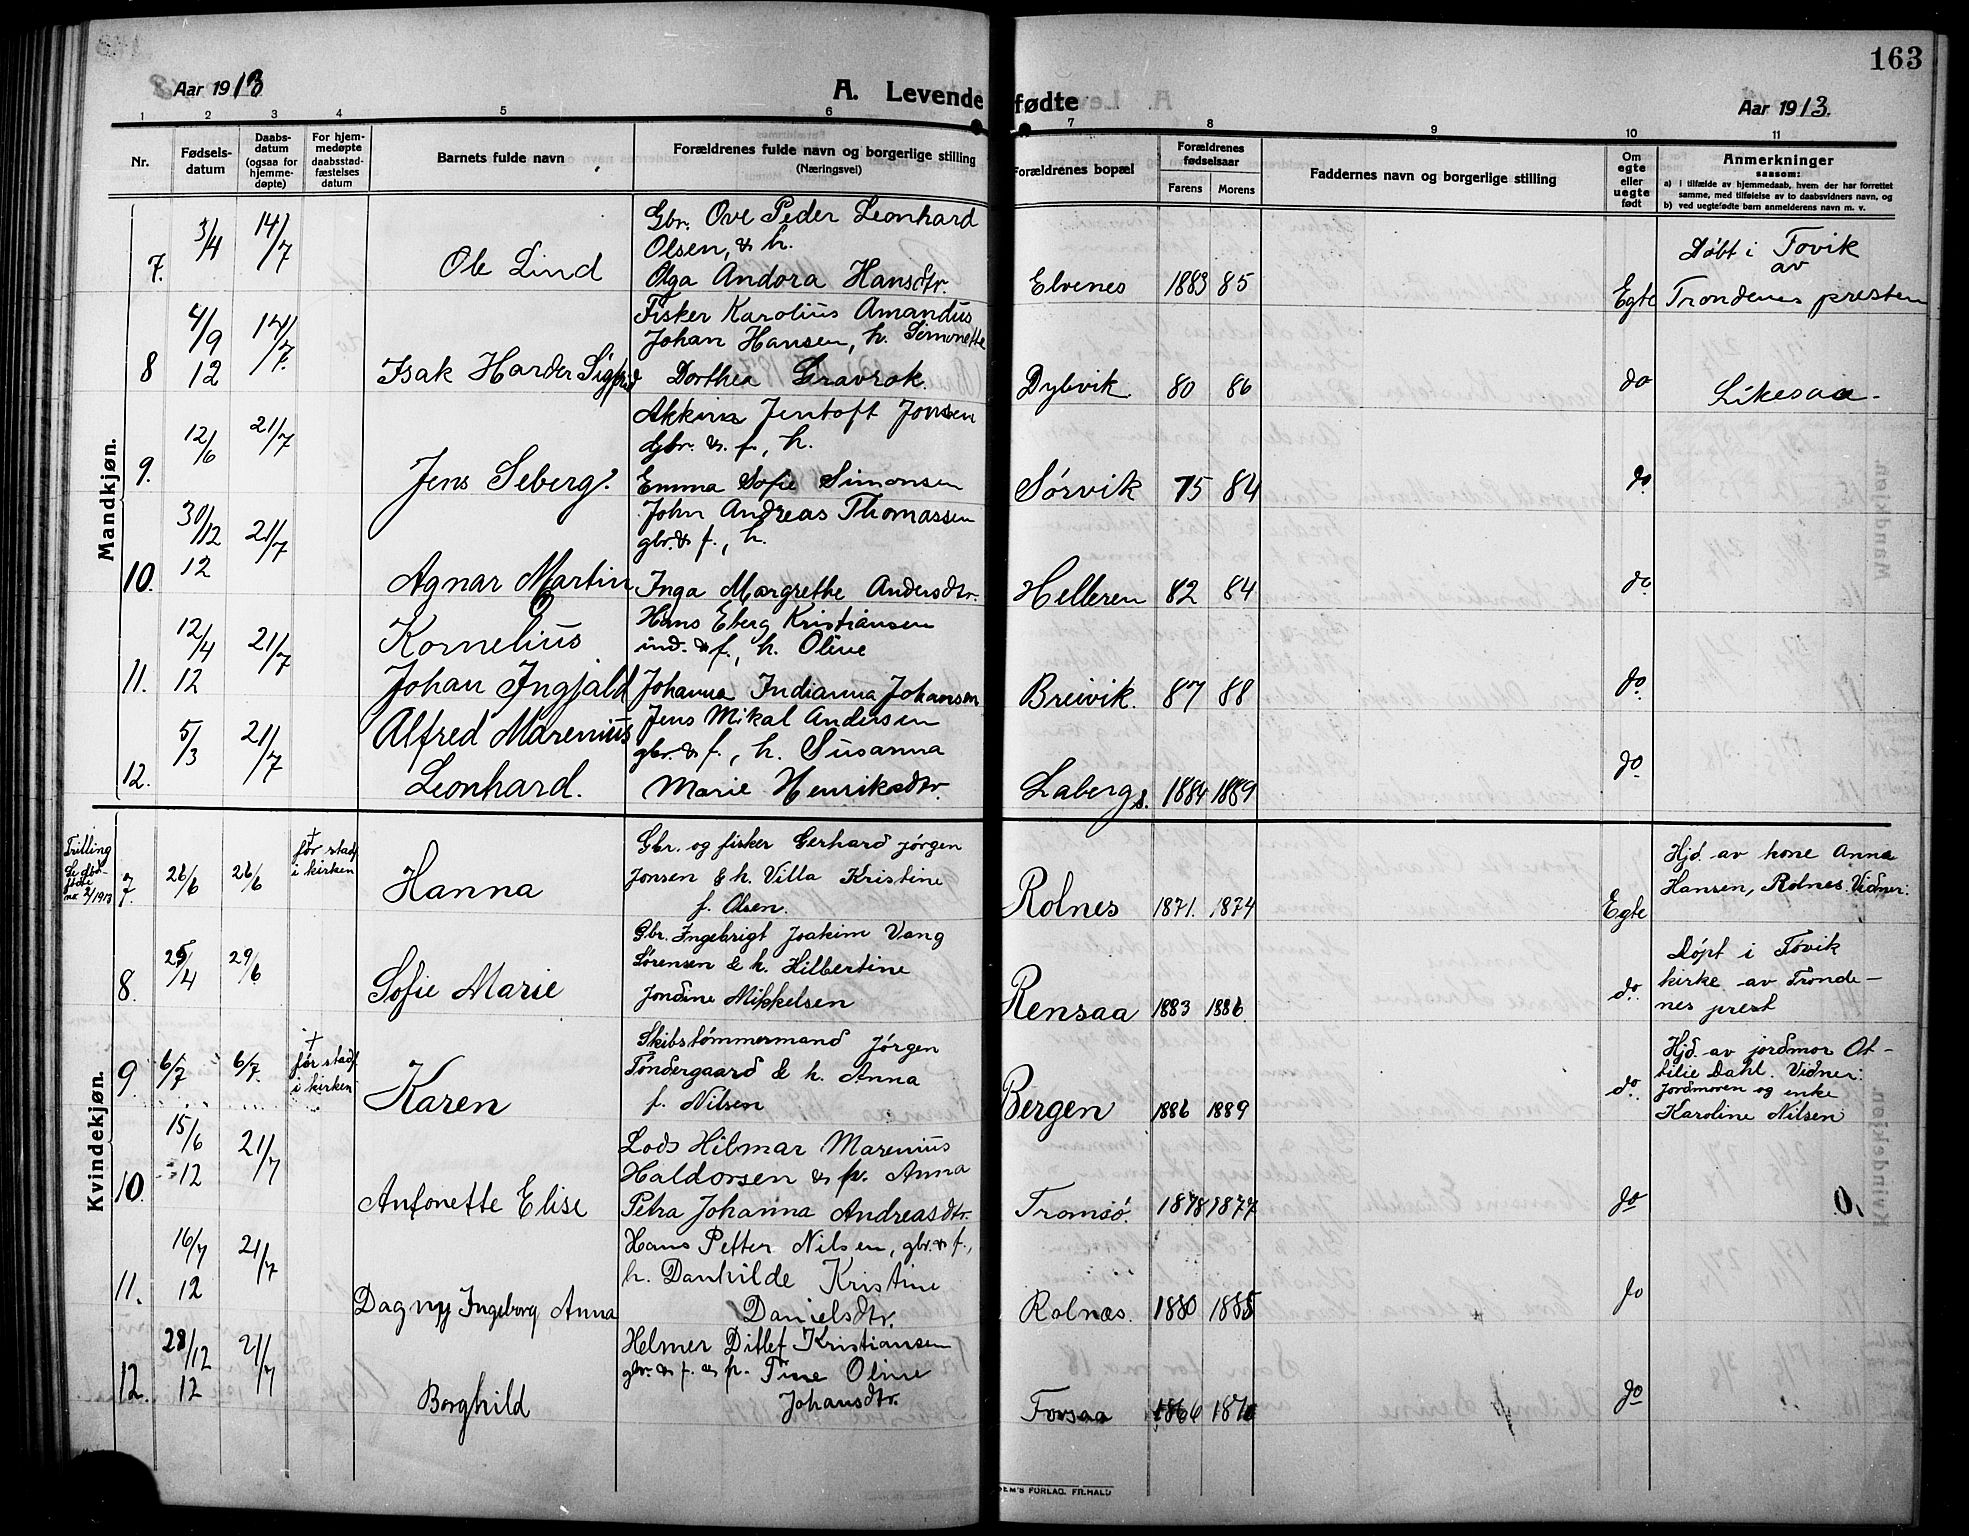 163
Aar 1913
A. Levende fødte
Aar 1913.
1 2 3 4 5 6 7 8 9 10 11
Nr.
Fødsels-
datum
Daabs-
datum
(ogsaa for
hjemme-
døpte)
For hjem-
medøpte
daabsstad-
fæstelses
datum
Barnets fulde navn
Forældrenes fulde navn og borgerlige stilling
(Næringsvei)
Forældrenes bopæl
Forældrenes
fødselsaar
Farens Morens
Faddernes navn og borgerlige stilling
Om
egte
eller
uegte
født
Anmerkninger
saasom:
a) i tilfælde av hjemmedaab, hvem der har forrettet
samme, med tilføielse av to daabsvidners navn, og
b) ved uegtefødte barn anmelderens navn m. v.
Mandkjøn.
7. 3/4 14/7 Ole Lind
Gbr. Ove Peder Leonhard
Olsen, & h.
Olga Andora Hansdtr.
Elvenes 1883 85 Egte
Døbt i Tovik
av
Trondenes presten
8 4/9 12 14/7. Isak Harder Sigfrid
Fisker Karolius Amandus
Johan Hansen, h. Simonette
Dorthea Gravrok.
Dybvik 80 86 do
Likesaa.
9. 12/6 21/7 Jens Seberg.
Jentoft Jonsen
Gbr. & f., h.
Emma Sofie Simonsen
Sørvik 75 84 do
10. 30/12 12 21/7 Agnar Martin
John Andreas Thomassen
gbr. & f., h.
Inga Margrethe Andersdtr.
Helleren 82 84 do
11. 12/4 12 21/7 Kornelius
Johan Ingjald
Hans Eberg Kristiansen
ind. & f., h. Oline
Johanna Indianna Johansen
Breivik. 87 88 do
12. 5/3 21/7 Alfred Marenius
Leonhard.
Jens Mikal Andersen
gbr. & f., h. Susanna
Marie Henriksdtr.
Labergs. 1884 1889 do
Kvindekjøn.
Trilling
7. 26/6 26/6
†
før stadf
i kirken
Hanna
Gbr. og fisker Gerhard Jørgen
Jonsen & h. Villa Kristine
f. Olsen.
Rolnes 1871. 1874 Egte
Hjd. av kone Anna
Hansen, Rolnes. Vidner:
8. 25/4 29/6 Sofie Marie
Gbr. Ingebrigt Joakim Vang
Sørensen & h. Hilbertine
Jondine Mikkelsen
Rensaa 1883 1886 do.
Døpt i Tovik
kirke av Tronde-
nes prest
9 6/7 6/7.
†
før stadf
i kirken
Karen
Skibstømmermand Jørgen
Tøndergaard & h. Anna
f. Nilsen
Bergen 1886 1889 do.
Hjd. av jordmor Ot-
tilie Dahl. Vidner:
Jordmoren og enke
Karoline Nilsen
10. 15/6 12 21/7 Antonette Elise
Lods Hilmar Marenius
Haldorsen & h. Anna
Petra Johanna Andreasdtr.
Tromsø. 1878 1877 do
0.
11. 16/7 12 21/7 Dagny Ingeborg Anna
Hans Petter Nilsen, gbr. & f.,
h. Danhilde Kristine
Danielsdtr.
Rolnæs. 1880 1885 do
12. 28/12 12 21/7 Borghild
Helmer Ditlef Kristiansen
gbr. & f. & h. Tine Oline
Johansdtr.
Forsaa 1866 1870 do